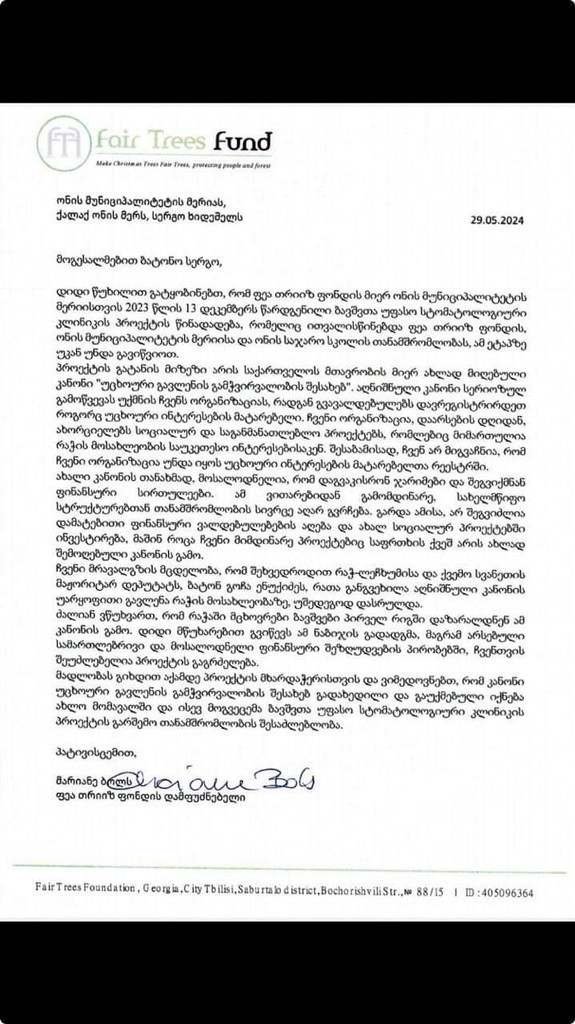 Fair Trees Fund
Make Christmas Trees Fair Trees, protecting people and forest
ონის მუნიციპალიტეტის მერიას,
ქალაქ ონის მერს, სერგო ხიდეშელს
29.05.2024
მოგესალმებით ბატონო სერგო,
დიდი წუხილით გატყობინებთ, რომ ფეა თრიიზ ფონდის მიერ ონის მუნიციპალიტეტის
მერიისთვის 2023 წლის 13 დეკემბერს წარდგენილი ბავშვთა უფასო სტომატოლოგიური
კლინიკის პროექტის წინადადება, რომელიც ითვალისწინებდა ფეა თრიიზ ფონდის,
ონის მუნიციპალიტეტის მერიისა და ონის საჯარო სკოლის თანამშრომლობას, ამ ეტაპზე
უკან უნდა გავიწვიოთ.
პროექტის გატანის მიზეზი არის საქართველოს მთავრობის მიერ ახლად მიღებული
კანონი "უცხოური გავლენის გამჭვირვალობის შესახებ". აღნიშნული კანონი სერიოზულ
გამოწვევას უქმნის ჩვენს ორგანიზაციას, რადგან გვავალდებულებს დავრეგისტრირდეთ
როგორც უცხოური ინტერესების მატარებელი. ჩვენი ორგანიზაცია, დაარსების დღიდან,
ახორციელებს სოციალურ და საგანმანათლებლო პროექტებს, რომლებიც მიმართულია
რაჭის მოსახლეობის საუკეთესო ინტერესებისაკენ. შესაბამისად, ჩვენ არ მიგვაჩნია, რომ
ჩვენი ორგანიზაცია უნდა იყოს უცხოური ინტერესების მატარებელთა რეესტრში.
ახალი კანონის თანახმად, მოსალოდნელია, რომ დაგვაკისრონ ჯარიმები და შეგვიქმნან
ფინანსური სირთულეები. ამ ვითარებიდან გამომდინარე, სახელმწიფო
სტრუქტურებთან თანამშრომლობის სივრცე აღარ გვრჩება. გარდა ამისა, არ შეგვიძლია
დამატებითი ფინანსური ვალდებულებების აღება და ახალ სოციალურ პროექტებში
ინვესტირება, მაშინ როცა ჩვენი მიმდინარე პროექტებიც საფრთხის ქვეშ არის ახლად
შემოღებული კანონის გამო.
ჩვენი მრავალგზის მცდელობა, რომ შეხვედროდით რაჭ-ლეჩხუმისა და ქვემო სვანეთის
მაჟორიტარ დეპუტატს, ბატონ გოჩა ენუქიძეს, რათა განგვეხილა აღნიშნული კანონის
უარყოფითი გავლენა რაჭის მოსახლეობაზე, უშედეგოდ დასრულდა.
ძალიან ვწუხვართ, რომ რაჭაში მცხოვრები ბავშვები პირველ რიგში დაზარალდნენ ამ
კანონის გამო. დიდი მწუხარებით გვიწევს ამ ნაბიჯის გადადგმა, მაგრამ არსებული
სამართლებრივი და მოსალოდნელი ფინანსური შეზღუდვების პირობებში, ჩვენთვის
შეუძლებელია პროექტის გაგრძელება.
მადლობას გიხდით აქამდე პროექტის მხარდაჭერისთვის და ვიმედოვნებთ, რომ კანონი
უცხოური გავლენის გამჭვირვალობის შესახებ გადახედილი და გაუქმებული იქნება
ახლო მომავალში და ისევ მოგვეცემა ბავშვთა უფასო სტომატოლოგიური კლინიკის
პროექტის გარშემო თანამშრომლობის შესაძლებლობა.
პატივისცემით,
მარიანე ბოლს Mariane Bols
ფეა თრიიზ ფონდის დამფუძნებელი
Fair Trees Foundation, Georgia, City Tbilisi, Saburtalo district, Bochorishvili Str., № 88/15 | ID:405096364